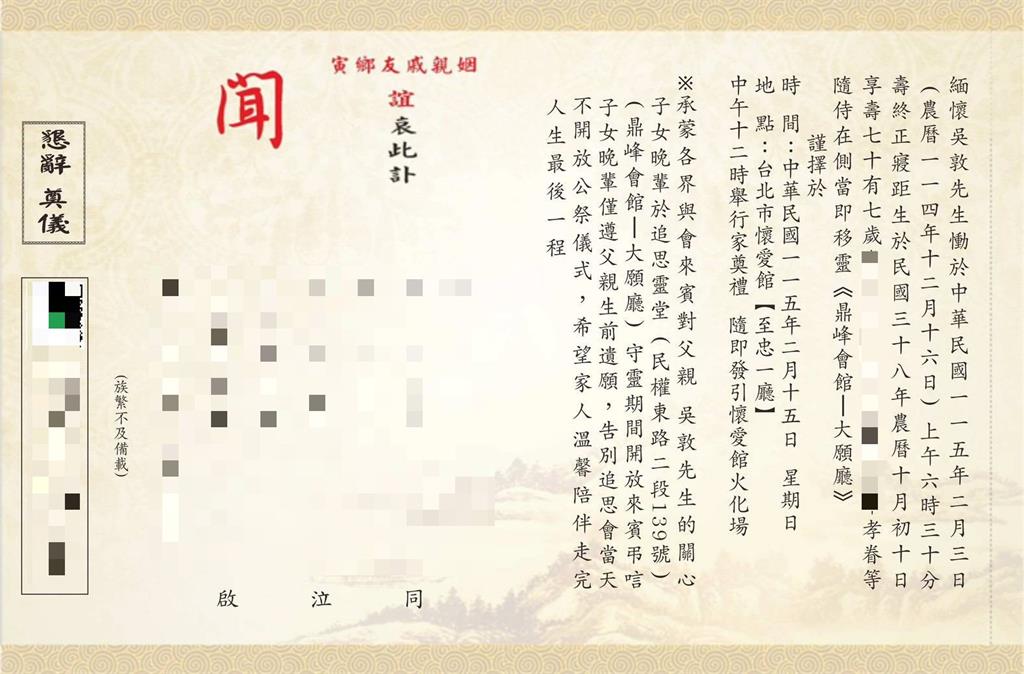 緬懷吳敦先生慟於中華民國一一五年二月三日
(農曆一一四年十二月十六日)上午六時三十分
壽終正寢距生於民國三十八年農曆十月初十日
享壽七十有七歲 孝眷等
隨侍在側當即移靈《鼎峰會館—大願廳》
謹擇於
時 間:中華民國一一五年二月十五日 星期日
地 點:台北市懷愛館【至忠一廳】
中午十二時舉行家奠禮 隨即發引懷愛館火化場
※承蒙各界與會來賓對父親 吳敦先生的關心
子女晚輩於追思靈堂(民權東路二段139號)
(鼎峰會館—大願廳)守靈期間開放來賓弔唁
子女晚輩僅遵父親生前遺願,告別追思會當天
不開放公祭儀式,希望家人溫馨陪伴走完
人生最後一程
姻親戚友鄉寅
誼哀此訃
聞
同泣啟
(族繁不及備載)
懇辭 奠儀